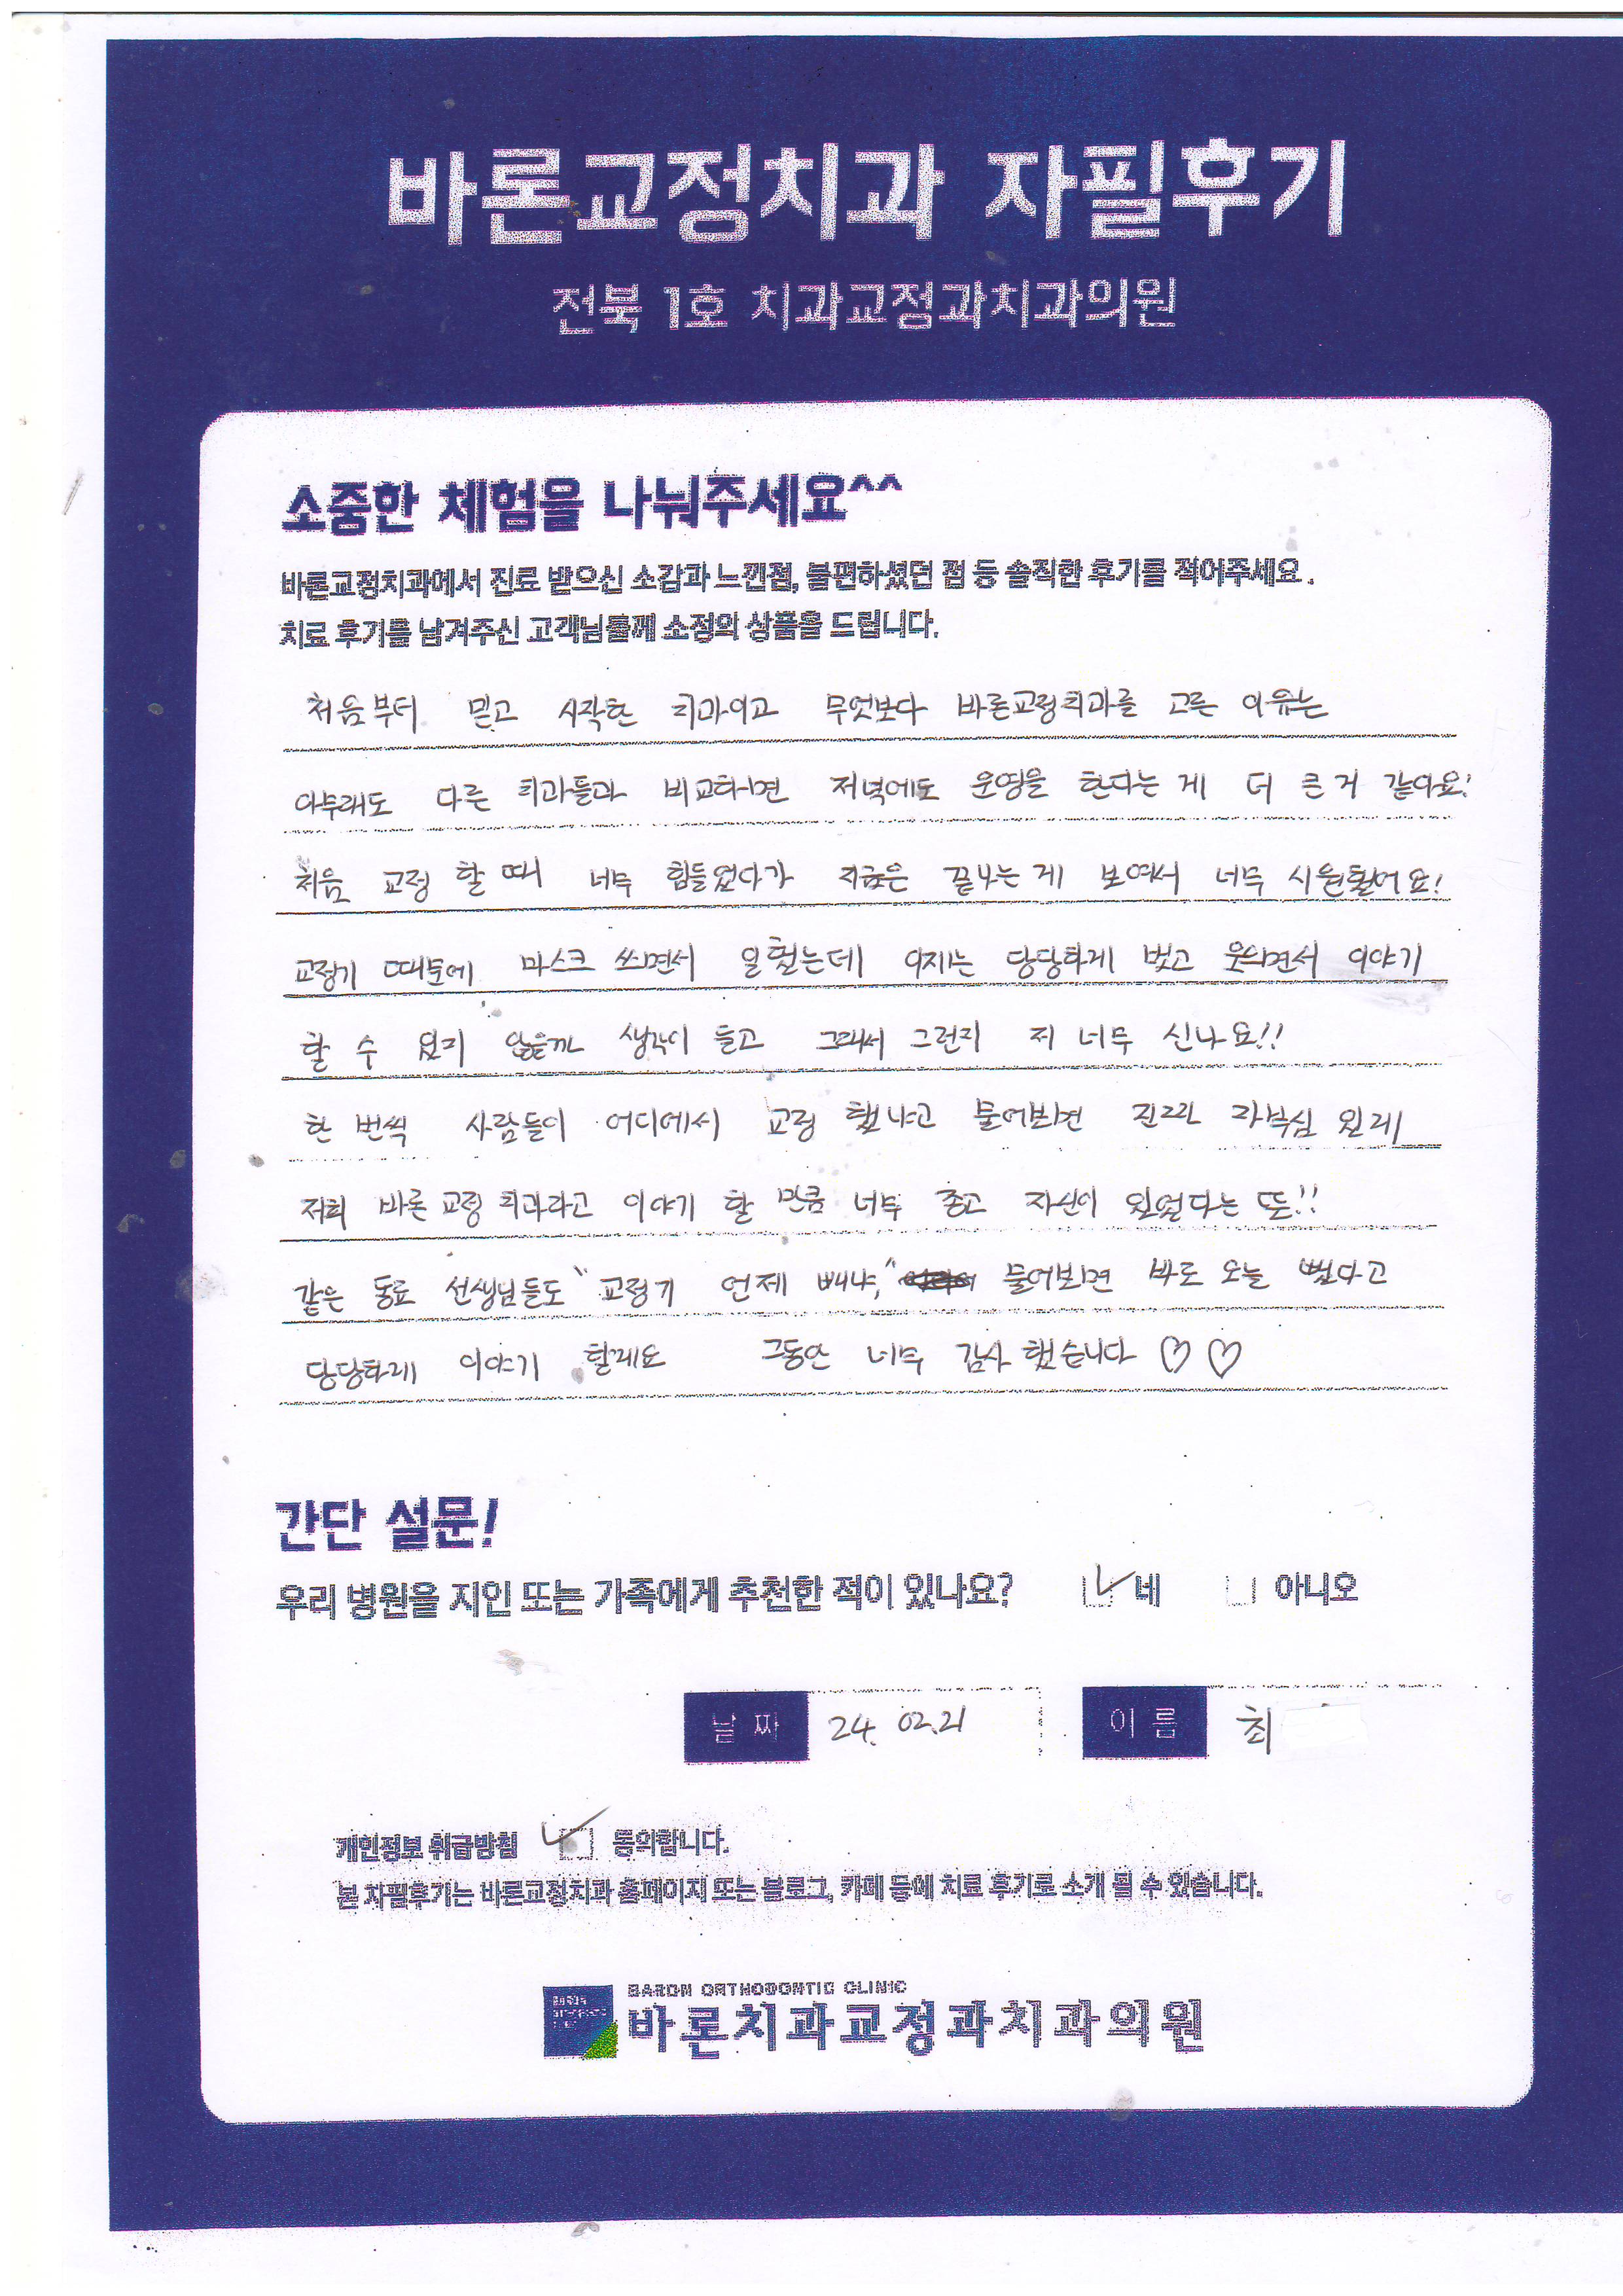 바론교정치과 자필후기
전북 1호 치과교정과치과의원
소중한 체험을 나눠주세요^^
바론교정치과에서 진료 받으신 소감과 느낀점, 불편하셨던 점 등 솔직한 후기를 적어주세요.
치료 후기를 남겨주신 고객님들께 소정의 상품을 드립니다.
처음부터 믿고 시작한 치과이고 무엇보다 바론교정치과를 고른 이유는
아무래도 다른 치과들과 비교하면 저녁에도 운영을 한다는 게 더 큰 거 같아요!
처음 교정 할 때 너무 힘들었다가 지금은 끝나는 게 보여서 너무 시원했어요!
교정기 때문에 마스크 쓰면서 일했는데 이제는 당당하게 벗고 웃으면서 이야기
할 수 있지 않을까 생각이 들고 그래서 그런지 저 너무 신나요!!
한 번씩 사람들이 어디에서 교정 했냐고 물어보면 진짜 자부심 있게
저희 바론 교정 치과라고 이야기 할 만큼 너무 좋고 자신이 있었다는 뜻!!
같은 동료 선생님들도 "교정기 언제 빼냐," 물어보면 바로 오늘 뺐다고
당당하게 이야기 할게요 그동안 너무 감사했습니다 ♡♡
간단 설문!
우리 병원을 지인 또는 가족에게 추천한 적이 있나요? 네 아니오
날짜 24. 02.21 이름 최
개인정보 취급방침 동의합니다.
본 자필후기는 바론교정치과 홈페이지 또는 블로그, 카페 등에 치료 후기로 소개 될 수 있습니다.
BARON ORTHODONTIC CLINIC
바론치과교정과치과의원